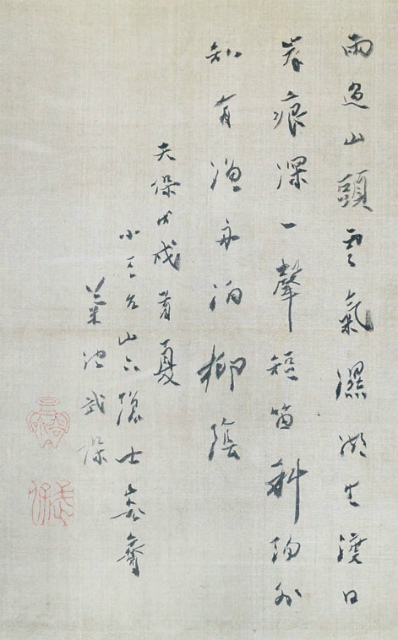 雨過山頭雲氣濕潮生渡口
岸痕深一聲短笛斜陽外
知有漁舟泊柳陰
天保戊戌首夏
小 山 隱士容齋
菊池武保
武保